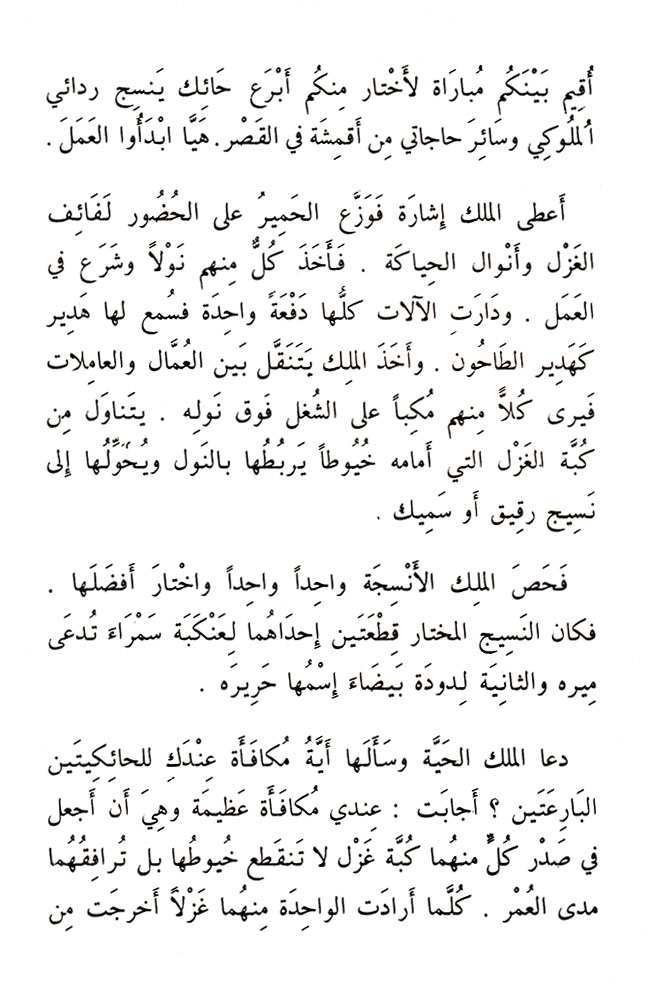 أُقِيم بَيْنَكُم مُباراة لأَخْتار مِنكُم أَبْرَع حَائِك يَنسِج ردائي
اُلملُوكِي وسَائِرَ حاجاتي مِن أَقمِشَة في القَصْر. هَيَّا ابْدَأُوا العَمَلَ.
أَعطى الملك إِشارَة فَوَزَّع الحَمِيرُ على الحُضُور لَفَائِف
الغَزْل وأَنْوال الحِياكَة . فَأَخَذَ كُلٌّ مِنهم نَوْلاً وشَرَع في
العَمَل . ودَارَتِ الآلات كلُّها دَفْعَةً واحِدَة فسُمع لها هَدِير
كَهَدِير الطَاحُون . وأَخَذَ الملِك يَتَنَقَّل بَين العُمَّال والعامِلات
فَيرى كُلاًّ مِنهم مُكِباً على الشُغل فَوق نَولِه . يتَناوَل مِن
كُبَّة الغَزْل التي أَمامه خُيُوطاً يَربُطُها بالنَول ويُحَوِّلُها إِلى
نَسِيج رقِيق أَو سَمِيك .
فَحَصَ الملِك الأَنْسِجَة واحِداً واحِداً واخْتارَ أَفضَلَها .
فكان النَسِيج المختار قِطْعَتَين إِحدَاهُما لِعَنْكَبَة سَمْرَاءَ تُدعَى
مِيره والثانِيَة لِدودَة بَيضَاءَ إِسْمُها حَرِيرَه .
دعا الملك الحَيَّة وسَأَلَها أَيَّةُ مُكافَأَة عِنْدَكِ للحائِكِيتَين
البَارِعَتَين ؟ أَجابَت : عِندي مُكافَأَة عَظيمَة وهِيَ أَن أَجعل
في صَدْر كُلٍّ منهُما كُبَّة غَزْل لا تَنقَطع خُيوطُها بل تُرافِقُهُما
مدى العُمْر . كُلَّما أَرادَت الواحِدَة مِنهُما غَزْلاً أَخرجَت مِن